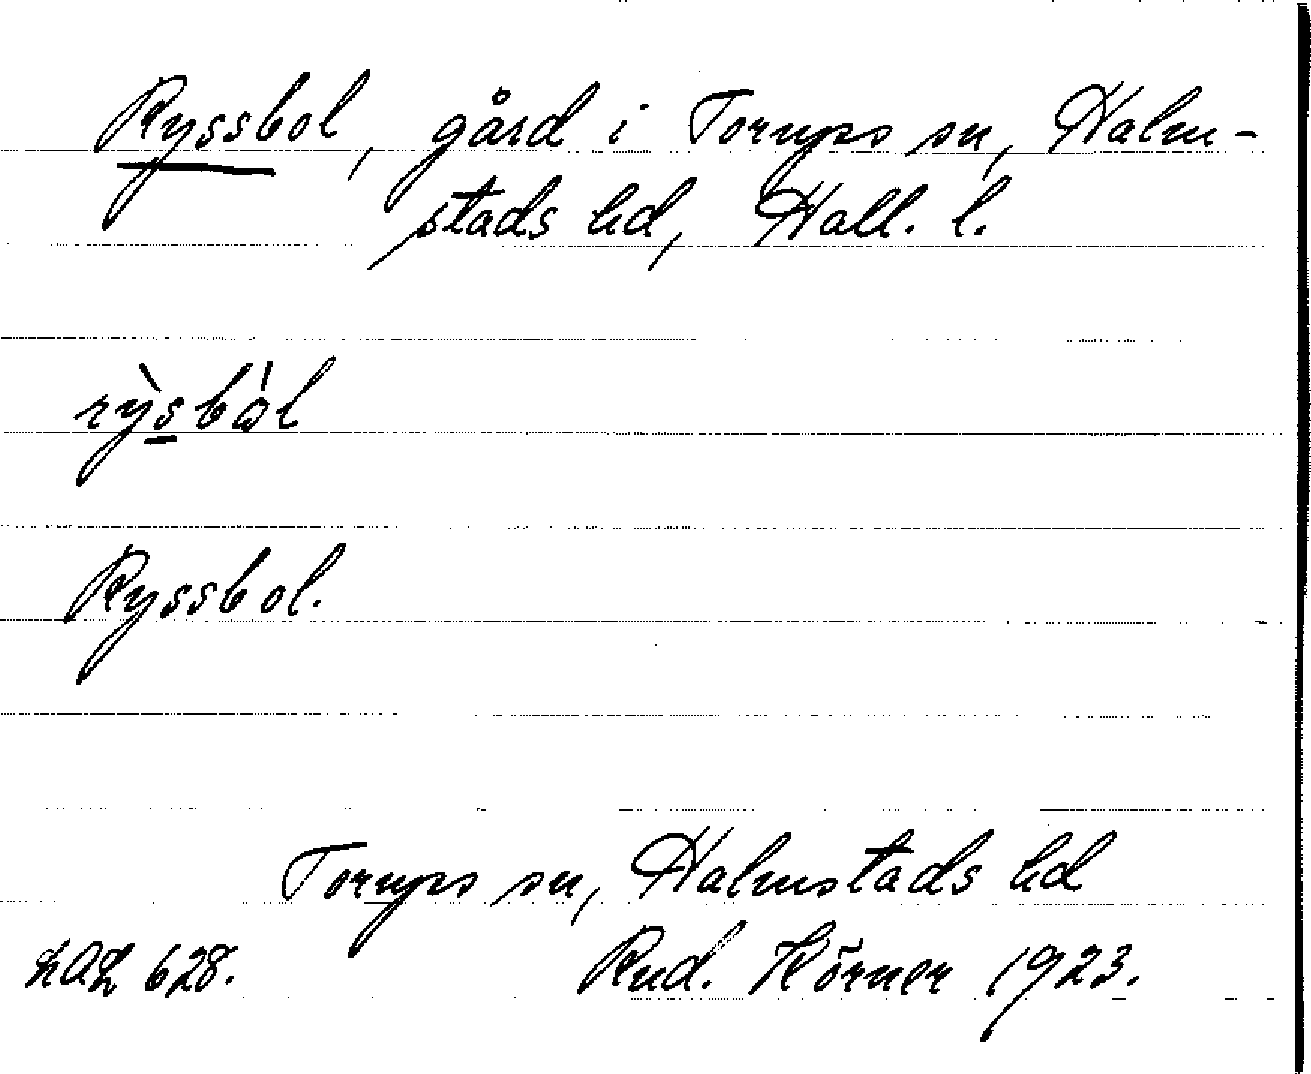 Ryssbol, gård i Torups sn, Halm-
stads hd, Hall. l.
rỳsbål
Ryssbol.
Torups sn, Halmstads hd
LAL 628. Rud. Hörner 1923.